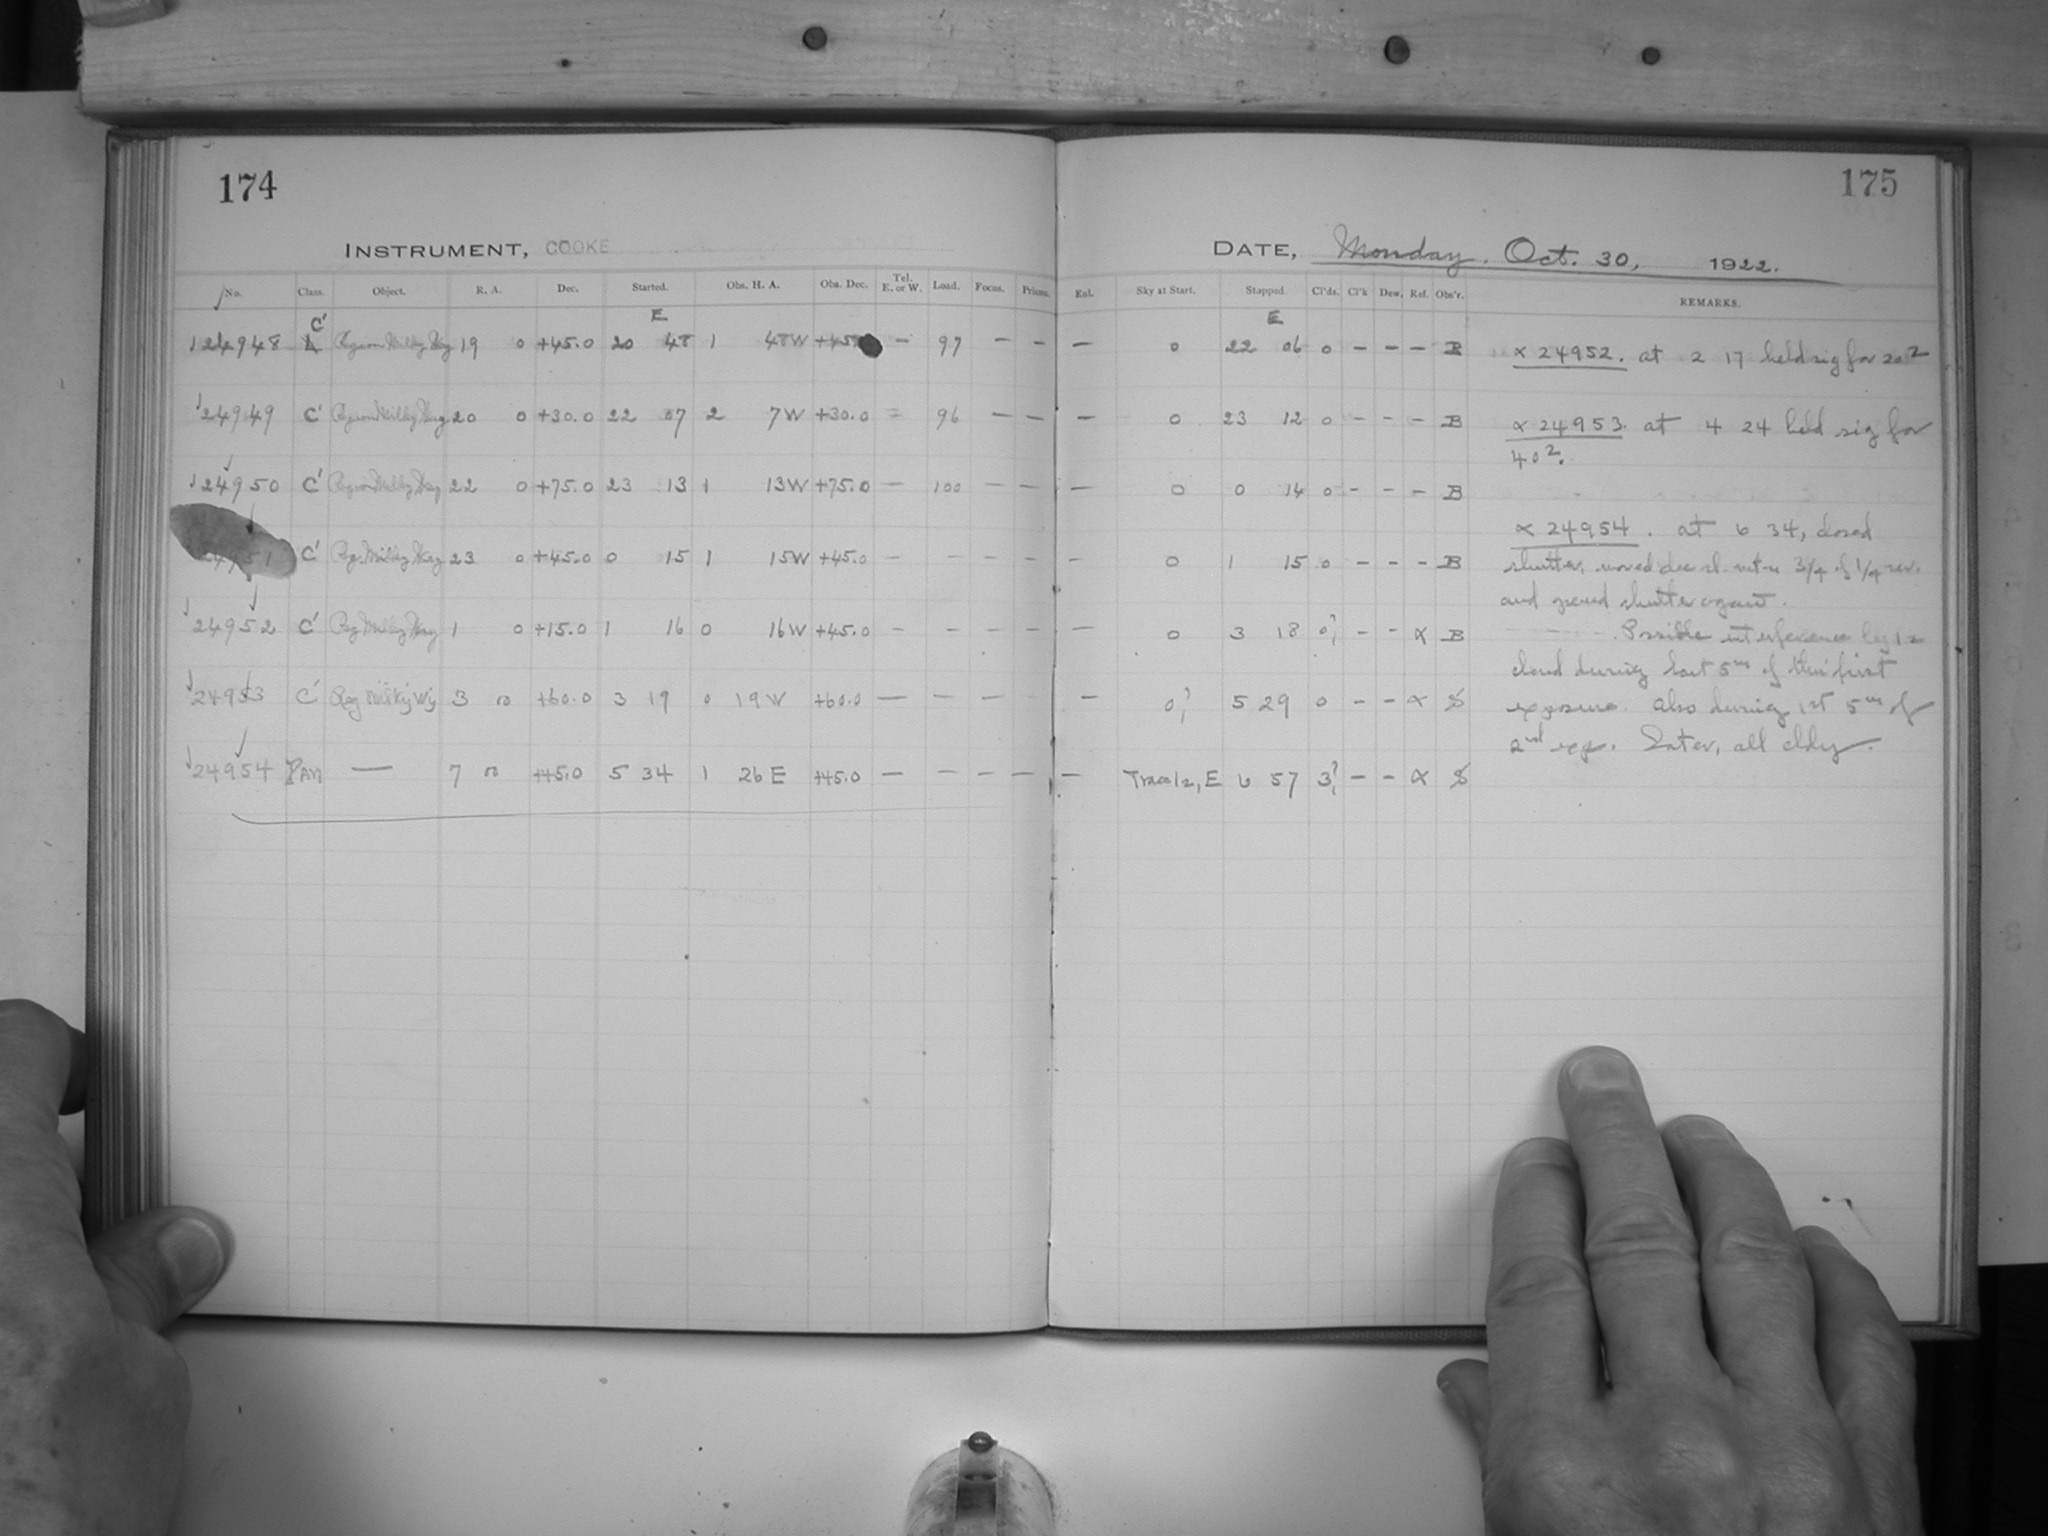 174
INSTRUMENT, COOKE
No. Class. Object. R. A. Dec. Started. Obs. H. A. Obs. Dec. Tel. E. or W. Load. Focus. Prisms.
E
C'
124948 Region Milky Way 19 0 +45.0 20 48 1 48W +45. — 97 — —
24949 C' Region Milky Way 20 0 +30.0 22 07 2 7W +30.0 = 96 — —
24950 C' Region Milky Way 22 0 +75.0 23 13 1 13W +75.0 — 100 — —
24951 C' Reg. Milky Way 23 0 +45.0 0 15 1 15W +45.0 — — — —
24952 C' Reg Milky Way 1 0 +15.0 1 16 0 16W +45.0 — — — —
24953 C' Reg Milky Wy 3 0 +60.0 3 19 0 19W +60.0 — — — —
24954 PAM — 7 0 +45.0 5 34 1 26E +45.0 — — — —
175
DATE, Monday. Oct. 30, 1922.
Enl. Sky at Start. Stopped. Cl'ds. Cl'k Dew. Ref. Obs'r. REMARKS.
E
— 0 22 06 0 — — — B
— 0 23 12 0 — — — B
— 0 0 14 0 — — — B
0 1 15 0 — — — B
— 0 3 18 0? — — α B
— 0? 5 29 0 — — α S
— Trace 12, E 6 57 3? — — α S
α 24952. at 2 17 held sig for 20²
α 24953. at 4 24 held sig for
40².
α 24954. at 6 34, closed
shutter, moved decl. 3/4 of 1/4 rev.
and opened shutter again.
Possible interference by 12
cloud during last 5ᵐ of this first
exposure. Also during 1st 5ᵐ of
2nd exp. Later, all cldy.